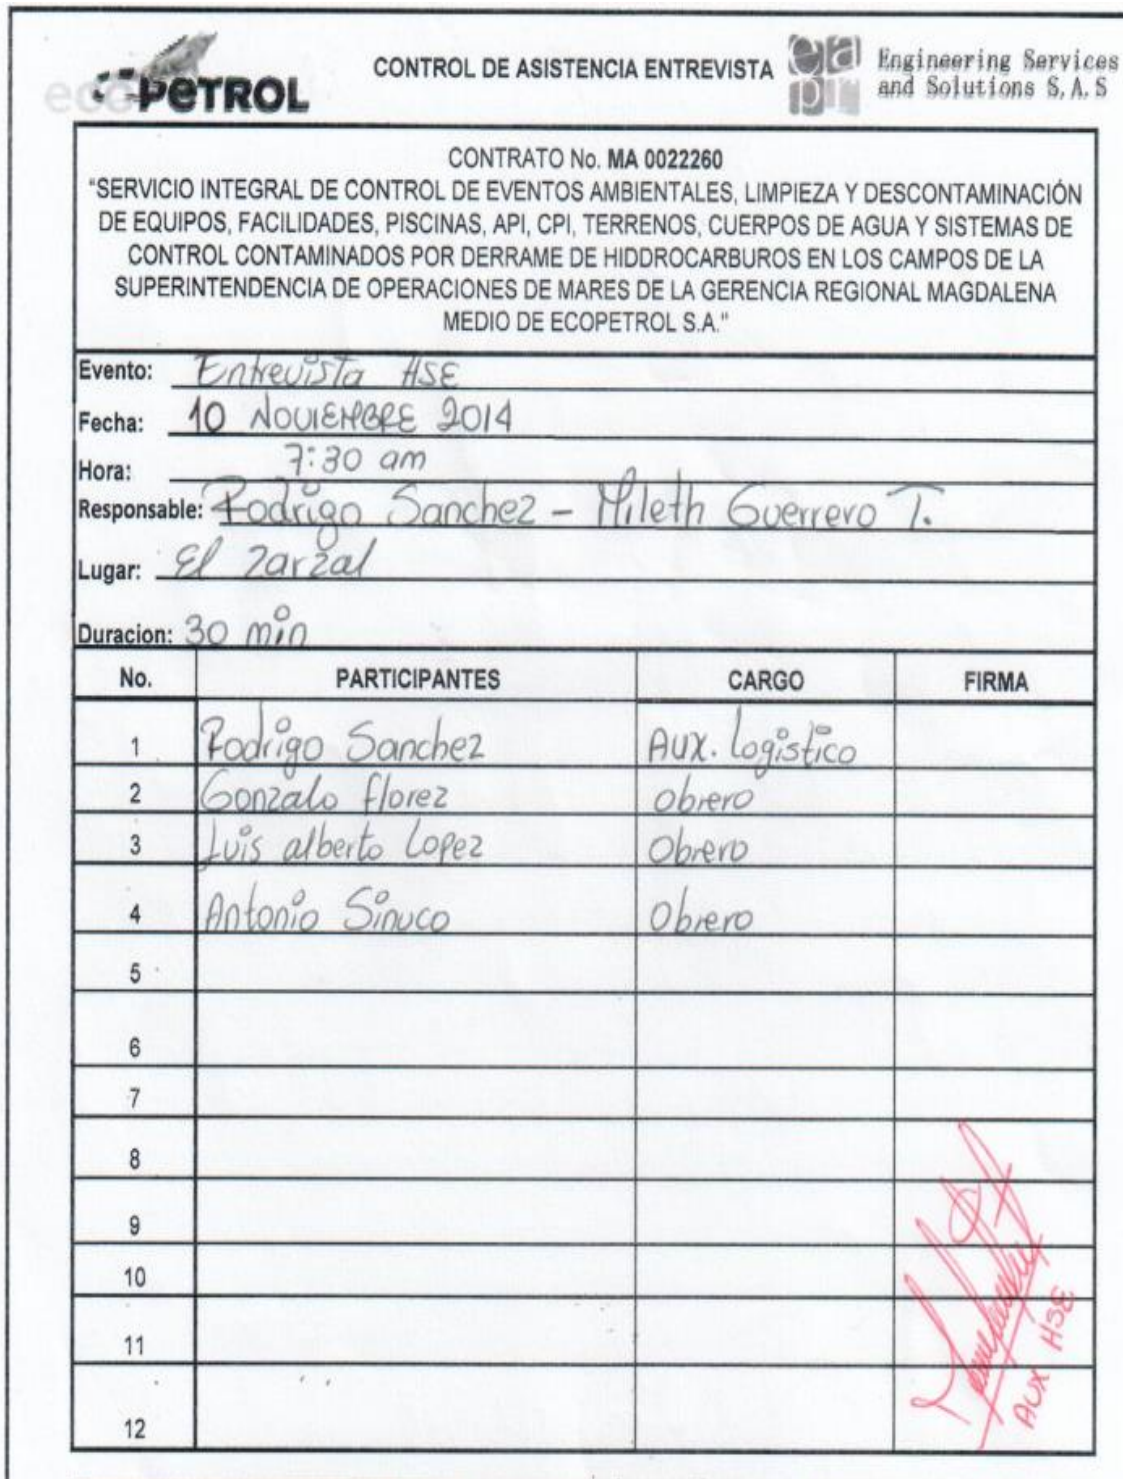 ecopetrol
CONTROL DE ASISTENCIA ENTREVISTA
Engineering Services
and Solutions S.A.S
CONTRATO No. MA 0022260
"SERVICIO INTEGRAL DE CONTROL DE EVENTOS AMBIENTALES, LIMPIEZA Y DESCONTAMINACIÓN
DE EQUIPOS, FACILIDADES, PISCINAS, API, CPI, TERRENOS, CUERPOS DE AGUA Y SISTEMAS DE
CONTROL CONTAMINADOS POR DERRAME DE HIDDROCARBUROS EN LOS CAMPOS DE LA
SUPERINTENDENCIA DE OPERACIONES DE MARES DE LA GERENCIA REGIONAL MAGDALENA
MEDIO DE ECOPETROL S.A."
Evento: Entrevista HSE
Fecha: 10 NOVIEMBRE 2014
Hora: 7:30 am
Responsable: Rodrigo Sanchez - Mileth Guerrero T.
Lugar: El Zarzal
Duracion: 30 min
No. PARTICIPANTES CARGO FIRMA
1 Rodrigo Sanchez Aux. Logistico
2 Gonzalo florez Obrero
3 Luis alberto Lopez Obrero
4 Antonio Sinuco Obrero
5
6
7
8
9
10
11
12
AUX HSE